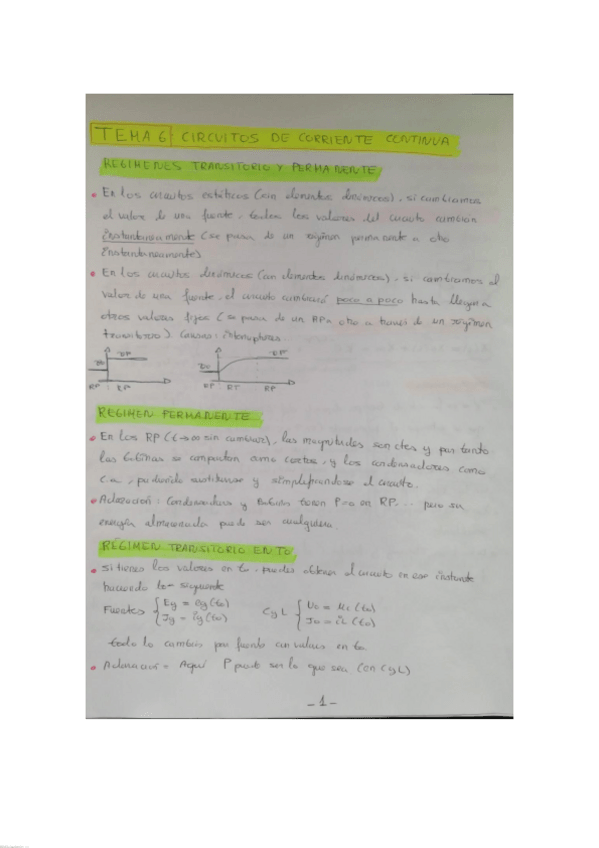 TEMA 6: CIRCUITOS DE CORRIENTE CONTINUA
REGIMENES TRANSITORIO Y PERMANENTE
• En los circuitos estáticos (sin elementos dinámicos), si cambiamos
el valor de una fuente, todos los valores del circuito cambian
instantáneamente (se pasa de un régimen permanente a otro
instantáneamente)
• En los circuitos dinámicos (con elementos dinámicos), si cambiamos el
valor de una fuente, el circuito cambiará poco a poco hasta llegar a
otros valores fijos (se pasa de un RP a otro a través de un régimen
transitorio). Causas: interruptores
RP RP RP RT RP
REGIMEN PERMANENTE
• En los RP (t→∞ sin cambiar), las magnitudes son ctes y por tanto
las bobinas se comportan como cortos, y los condensadores como
c.a, pudiendo sustituirse y simplificándose el circuito.
• Aclaración: Condensadores y bobinas tienen P=0 en RP... pero su
energía almacenada puede ser cualquiera.
REGIMEN TRANSITORIO EN TO
• si tienes los valores en to, puedes obtener el circuito en ese instante
haciendo lo siguiente
Fuentes { Eg = eg(to) C y L { Uo = uc(to)
Jg = ig(to) Io = iL(to)
todo lo cambias por fuente con valores en to
• Aclaración = Aquí P puede ser lo que sea (en C y L)
- 1 -